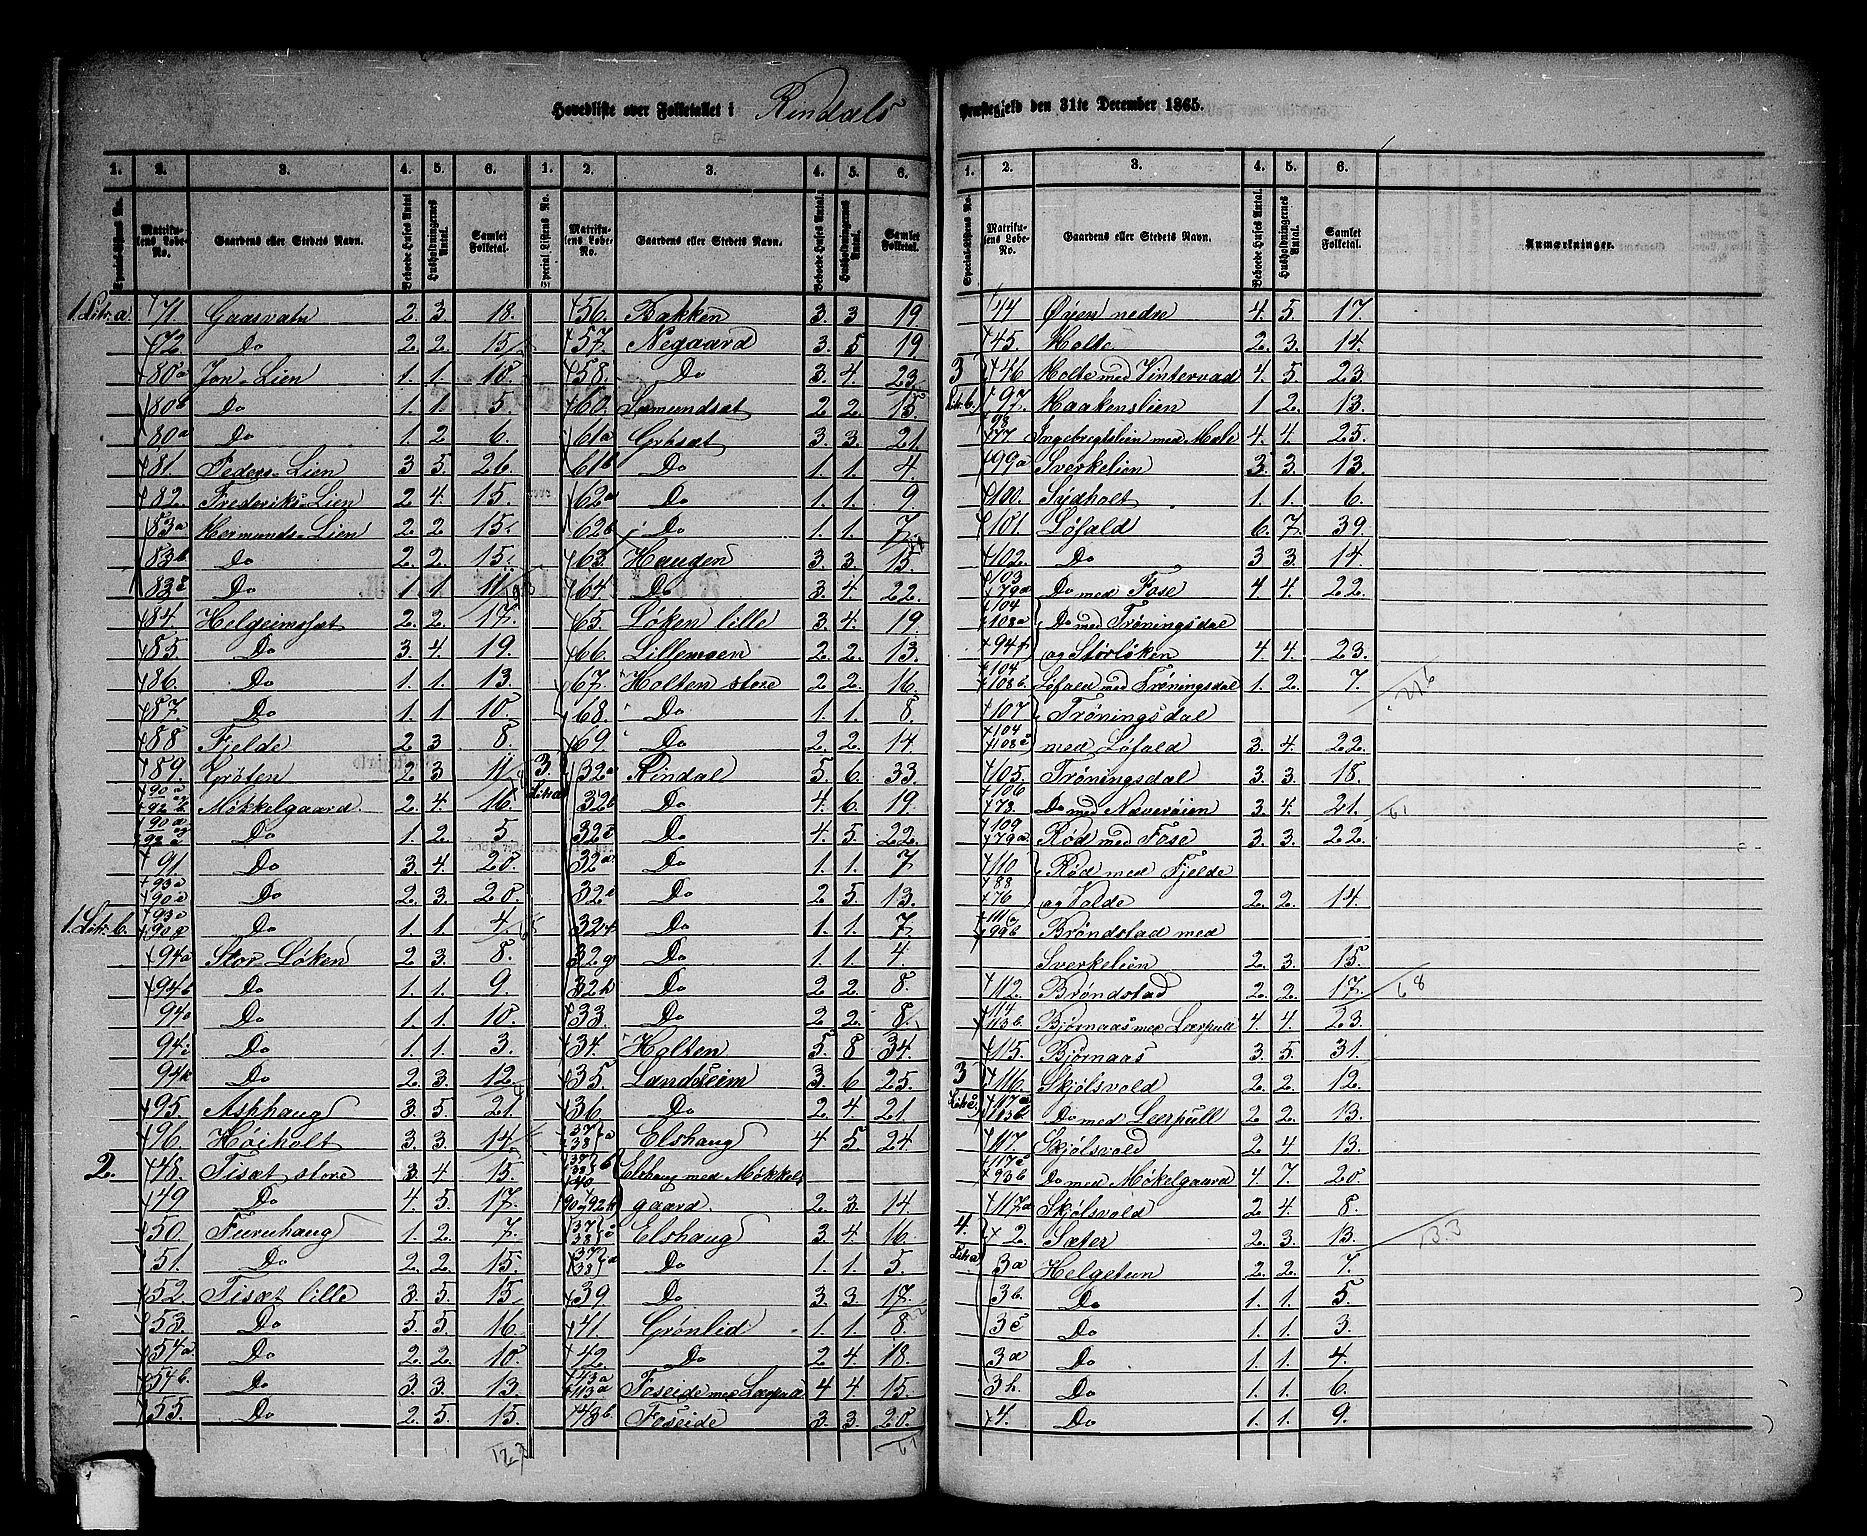 Hovedliste over Folketallet i Rindals Præstegjeld den 31te December 1865.
1. 2. 3. 4. 5. 6. 1. 2. 3. 4. 5. 6.
Special-Listens No. Matrikulens Løbe-No. Gaardens eller Stedets Navn. Beboede Huses Antal. Husholdningernes Antal. Samlet Folketal. Special-Listens No. Matrikulens Løbe-No. Gaardens eller Stedets Navn. Beboede Huses Antal. Husholdningernes Antal. Samlet Folketal.
1. Litr. a 71. Gaasvatn 2. 3. 18. 56. Bakken 3. 3. 19
72. Do 2. 2. 15. 57. Negaard 3. 5. 19
80a Jon-Lien 1. 1. 10. 58. Do 3. 4. 23.
80b Do 1. 1. 5. 60. Semundsæt 2. 2. 15
80a Do 1. 2. 6. 61a Grøsæt 3. 3. 21.
81. Peders-Lien 3. 5. 26. 61b Do 1. 1. 4.
82. Frederiks-Lien 2. 4. 15. 62a Do 1. 1. 9
83a Hermunds-Lien 2. 2. 15. 62b Do 1. 1. 7.
83b Do 2. 2. 15. 63. Haugen 3. 3. 15.
83c Do 1. 1. 11. 64. Do 3. 4. 22.
84. Helgeimssæt 2. 2. 17. 65. Løken lille 3. 4. 19.
85. Do 3. 4. 19. 66. Lillemoen 2. 2. 13.
86. Do 1. 1. 13. 67. Holten store 2. 2. 16.
87. Do 1. 1. 10. 68. Do 1. 1. 8.
88 Fjelde 2. 3 8. 69. Do 2. 2. 14.
89. Grøten 2. 3 11. 3. Litr. a 32a Rindal 5. 6. 33.
90a 92b Møkkelgaard 2. 4. 16. 32b Do 4. 6. 19.
90a og 92a Do 1. 2. 5 32c Do 4. 5. 22.
91 Do 3. 4. 20. 32d Do 1. 1. 7
93a 90c Do 2. 3. 20. 32e Do 2. 5. 13.
1. Litr. b. 93c 90d Do 1. 1. 4. 32f Do 1. 1. 7.
94a Stor-Løken 2. 3. 8. 32g Do 1. 1. 4.
94b Do 1. 1. 9. 32h Do 2. 2. 8.
94c Do 1. 1. 10. 33. Do 2. 2. 8.
94d Do 1. 1. 3. 34. Holten 5. 8 34.
94e Do 2. 3. 12. 35. Landseim 3. 6 25.
95. Asphaug 3. 5. 21. 36. Do 2. 4 21.
96. Høiholt 3. 3. 14. 37 38 a Elshaug 4. 5. 24.
2. 48. Tisæt store 3. 4 15. 37 38 40 b Elshaug med Møkkel-
49 Do 4. 5. 17. 90a 92b gaard 2. 3. 14
50. Furuhaug 1. 2. 7. 37 38 c Elshaug 3. 4 16.
51. Do 2. 2. 15. 37 38 d Do 1. 1. 5.
52. Tisæt lille 3. 5. 15. 39 Do 3. 3. 17.
53. Do 5. 5. 16. 41. Grønlid 1. 1. 8.
54a. Do 2. 2. 10. 42. Do 2. 4. 18.
54b. Do 3. 3. 13. 43a 113a Foseide med Leerpul 4. 4. 15.
55. Do 2. 5. 15. 43b Foseide 3. 3. 20.
123 61
1. 2. 3. 4. 5. 6.
Special-Listens No. Matrikulens Løbe-No. Gaardens eller Stedets Navn. Beboede Huses Antal. Husholdningernes Antal. Samlet Folketal. Anmærkninger.
44 Øien nedre 4. 5. 17.
45. Holte 2. 3. 14.
3 46 Holte med Vintervad 4. 5. 23.
Litr. b. 97. Haakenslien 1. 2. 13.
98 77 Ingebregtslien med Male 4. 4. 25.
99a Sverkelien 3. 3. 13.
100. Sydholt 1. 1. 6.
101. Løfald 6. 7. 39.
102. Do 3 3. 14.
103 79a Do med Fose 4 4. 22.
104 108a Do med Trøningsdal
94f og Storløken 4. 4. 23.
104 108b. Løfald med Trøningsdal 1. 2. 7. 216
107 Trøningsdal
104 108c med Løfald 3. 4. 22.
105. Trøningsdal 3. 3. 18.
106 73. Do med Næverøien 3. 4. 21. 61
109 79a. Rød med Fose 3. 3. 22.
110 Rød med Fjelde
88 76 og Volde 2. 2. 14.
111 og 99b Brøndstad med
Sverkelien 2. 3. 15.
112. Brøndstad 2. 2. 17. 68
114 113b. Bjørnaas med Leerpull 4. 4. 23.
115. Bjørnaas 3. 5. 31.
3 116. Skjølsvold 2. 2. 12.
Litr. c. 117c 113b Do med Leerpull 2. 2. 13.
117. Skjølsvold 2. 4. 13.
117c 93b Do med Møkelgaard 4. 7. 20.
117d Skjølsvold 2. 4. 8.
4. 2. Sæter 2. 3. 13. 133
Litr. a 3a Helgetun 2. 2. 7.
3b. Do 1. 1. 5.
3c Do 1. 1. 3.
3d Do 1. 1. 4.
3h. Do 1. 1. 6.
4. Do 1. 1. 9.